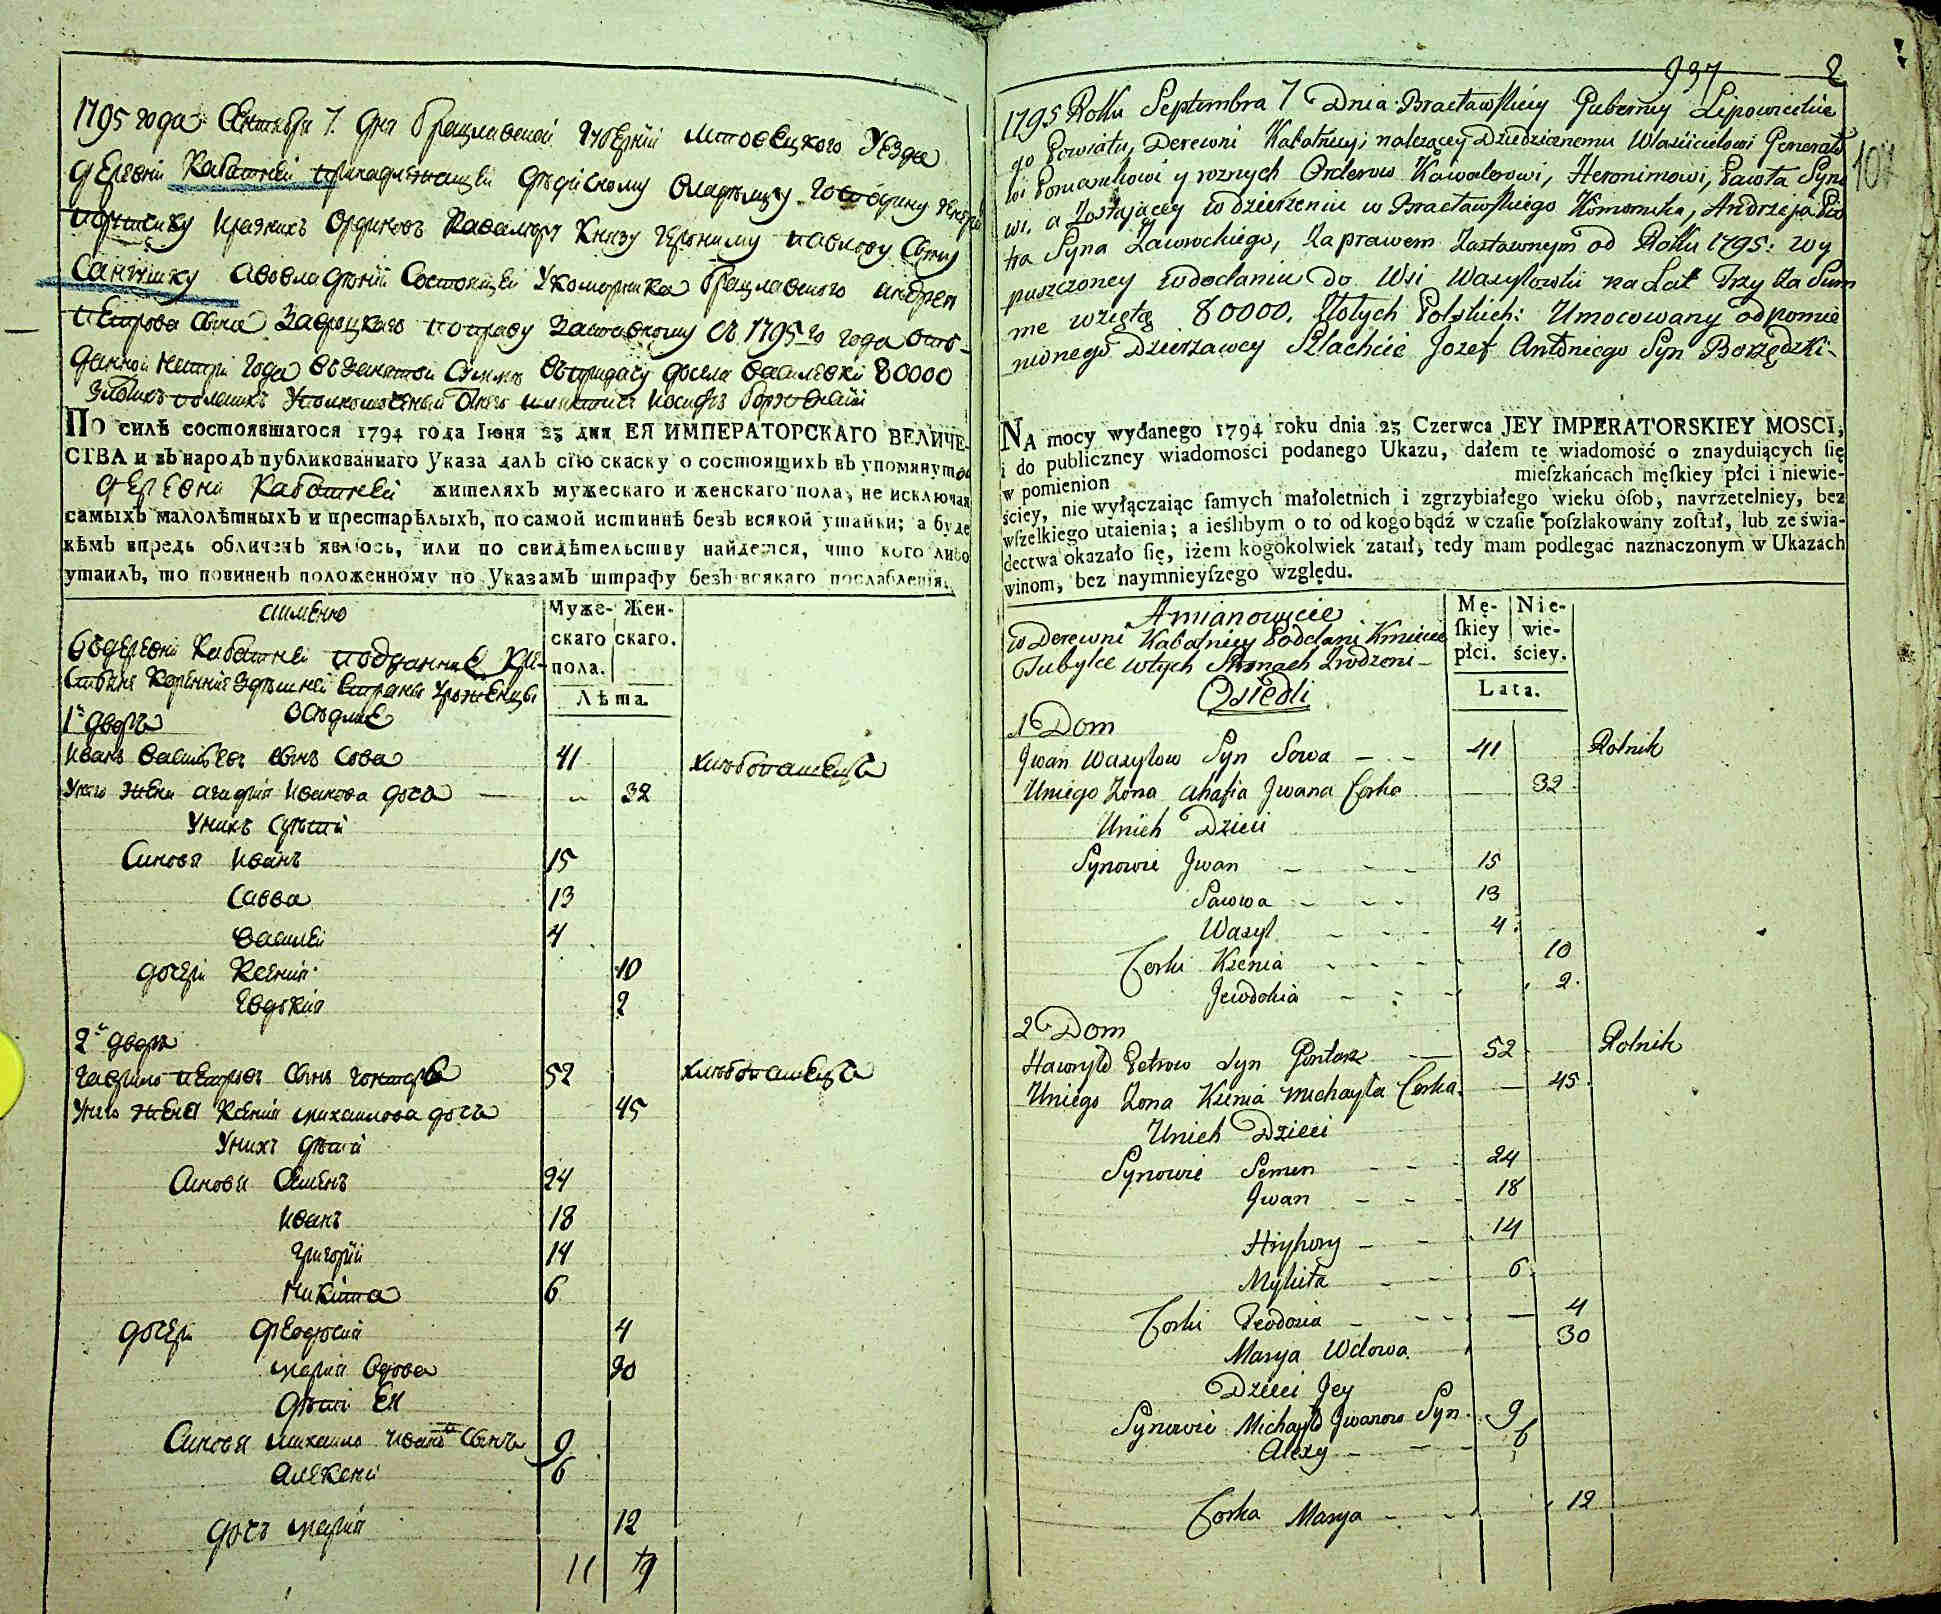 1795 года Сентября 7. дня Брацлавской губернии Липовецкого уезда
деревни Кабатней принадлежащей дедычному владельцу господину генералу
поручику и разных орденов кавалеру князю Герониму Павлову сыну
Сангушку а во владении состоящей у коморника брацлавского Андрея
Петрова сына Завроцкаго по праву заставному съ 1795го года
данной на три года в сумме в придачу до села Василевки 80000
злотых польских уполномоченный от него шляхтич Иосиф
По силѣ состоявшагося 1794 года Іюня 23 дня ЕЯ ИМПЕРАТОРСКАГО ВЕЛИЧЕ-
СТВА и въ народъ публикованнаго Указа далъ сію скаску о состоящихъ въ упомянутой
деревни Кабатней жителяхъ мужескаго и женскаго пола, не исключая
самыхъ малолѣтныхъ и престарѣлыхъ, по самой истиннѣ безъ всякой утайки; а буде
кѣмъ впредь обличенъ явлюсь, или по свидѣтельству найдется, что кого либо
утаилъ, то повиненъ положенному по Указамъ штрафу безъ всякаго послабленія.
аименно
Муже- Жен-
скаго скаго.
пола.
Лѣта.
в деревни Кабатней подданние кре-
стяне коренние здешней страны уроженцы
оседлие
1й дворъ
Иванъ Васильевъ сынъ Сова 41 хлебопашецъ
у него жена Агафия Иванова дочь — 32
у нихъ дети
Синовя Иванъ 15
Савва 13
Василей 4
дочери Ксения 10
Евдокия 2
2й дворъ
Гаврило Петровъ сынъ Гонтарь 52 хлебопашецъ
у него жена Ксения Михаилова дочь 45
у нихъ дети
Синовя Семенъ 24
Иванъ 18
Григорий 14
Никита 6
дочери Феодосия 4
Мария вдова 30
дети Ея
Синовя Михаило Ивановъ сынъ 9
Алексей 6
дочь Мария 12
11 9
937 2
107
1795 Roku Septembra 7 Dnia Bracławskiey Guberny Lipowieckie
go Powiatu, Derewni Kabatniey, należącey Dziedzicznemu Właścicielowi Generało
wi Poruznikowi y roznych Orderow Kawalerowi, Heronimowi, Pawła Syno
wi, a zostającey w dzierżeniu u Bracławskiego Komornika, Andrzeja Pio
tra Syna Zawrockiego, za prawem zastawnym od Roku 1795: wy
puszczoney w dodaniu do Wsi Wasylowki na Lat Trzy za Sum
me wziętą 80000. Złotych Polskich: Umocowany od pomie
nionego Dzierżawcy Szlachcic Jozef Antoniego Syn Borzędzki.
NA mocy wydanego 1794 roku dnia 23 Czerwca JEY IMPERATORSKIEY MOSCI,
i do publiczney wiadomości podanego Ukazu, dałem tę wiadomość o znayduiących się
w pomienion mieſzkańcach męſkiey płci i niewie-
ściey, nie wyłączaiąc ſamych małoletnich i zgrzybiałego wieku oſob, nayrzetelniey, bez
wſzelkiego utaienia; a ieślibym o to od kogo bądź w czaſie poſzlakowany zoſtał, lub ze świa-
dectwa okazało ſię, iżem kogokolwiek zataił, tedy mam podlegać naznaczonym w Ukazach
winom, bez naymnieyſzego względu.
Amianowicie
Mę- Nie-
ſkiey wie-
płci. ściey.
Lata.
w Derewni Kabatniey Poddani Kmiecie
Tubylce w tych Stronach Zrodzeni —
Osiedli
1 Dom
Jwan Wasylow Syn Sowa — 41 Rolnik
Uniego Zona Ahafia Jwana Corka 32
Unich Dzieci
Synowie Jwan 15
Sawwa 13
Wasyl 4
Corki Ksenia 10
Jewdokia 2
2 Dom
Hawryło Petrow Syn Gontarz 52 Rolnik
Uniego Zona Ksenia Michayła Corka 45
Unich Dzieci
Synowie Semen 24
Jwan 18
Hryhory 14
Mykita 6
Corki Teodozia 4
Marya Wdowa 30
Dzieci Jey
Synowie Michayło Jwanow Syn 9
Alexy 6
Corka Marya 12